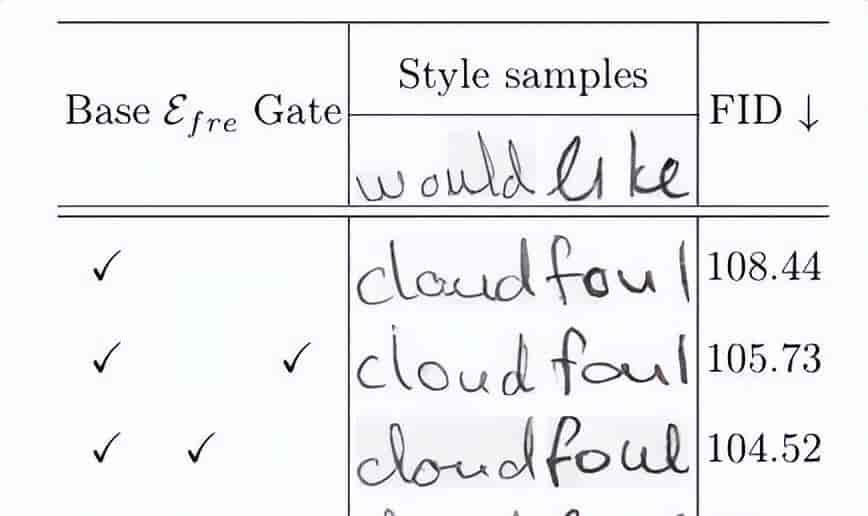 Style samples
Base ℰ_fre Gate FID ↓
would like
✓ cloud foul 108.44
✓ ✓ cloud foul 105.73
✓ ✓ cloud foul 104.52